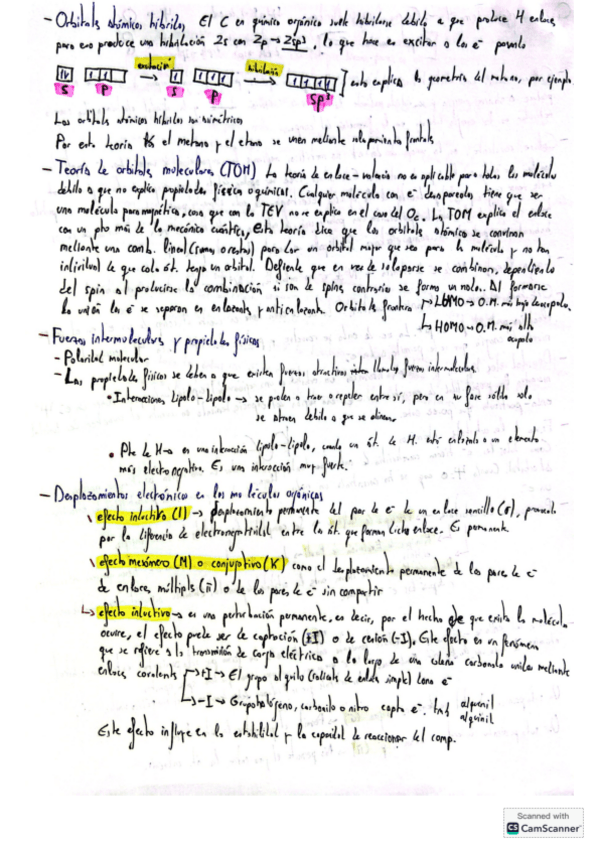 - Orbitales atómicos híbridos El C en química orgánica suele hibridarse debido a que produce 4 enlaces
para eso produce una hibridación 2s con 2p → 2sp³, lo que hace es excitar a los e⁻ pasando
excitación hibridación
esto explica la geometría del metano, por ejemplo
s p s p sp³
Los orbitales atómicos híbridos son simétricos
Por esta teoría el metano y el etano se unen mediante solapamiento frontal
- Teoría de orbitales moleculares (TOM) La teoría de enlace-valencia no es aplicable para todas las moléculas
debido a que no explica propiedades físicas o químicas. Cualquier molécula con e⁻ desapareados tiene que ser
una molécula paramagnética, cosa que con la TEV no se explica en el caso del O₂. La TOM explica el enlace
con un pto más de la mecánica cuántica, esta teoría dice que los orbitales atómicos se combinan
mediante una comb. lineal (sumas o restas) para dar un orbital mayor que sea para la molécula y no tan
individual de que cada át. tenga un orbital. Defiende que en vez de solaparse se combinan, dependiendo
del spin al producirse la combinación si son de spins contrarios se forma un nodo. Al formarse
la unión los e⁻ se separan en enlazante y antienlazante. Orbitales frontera → LUMO → O.M. más bajo desocupado.
↳ HOMO → O.M. más alto
ocupado
- Fuerzas intermoleculares y propiedades físicas
- Polaridad molecular
- Las propiedades físicas se deben a que existen fuerzas atractivas llamadas fuerzas intermoleculares.
• Interacciones dipolo-dipolo → se pueden atraer o repeler entre sí, pero en su fase sólida solo
se atraen debido a que se alinean.
• Pte de H → es una interacción dipolo-dipolo, cuando un át. de H. está enlazado a un elemento
más electronegativo. Es una interacción muy fuerte.
- Desplazamientos electrónicos en las moléculas orgánicas
efecto inductivo (I) → desplazamiento permanente del par de e⁻ de un enlace sencillo (σ), provocado
por la diferencia de electronegatividad entre los át. que forman dicho enlace. Es permanente
efecto mesómero (M) o conjugativo (K) como el desplazamiento permanente de los pares de e⁻
de enlaces múltiples (π) o de los pares de e⁻ sin compartir
↳ efecto inductivo → es una perturbación permanente, es decir, por el hecho de que exista la molécula
ocurre, el efecto puede ser de captación (±I) o de cesión (-I). Este efecto es un fenómeno
que se refiere a la transmisión de carga eléctrica a lo largo de una cadena carbonada unidas mediante
enlaces covalentes → +I → El grupo alquilo (radicales de enlace simple) dona e⁻
→ -I → Grupo halógeno, carbonilo o nitro capta e⁻. tmb alquenil
alquinil
Este efecto influye en la estabilidad y la capacidad de reaccionar del comp.
Scanned with
CS CamScanner